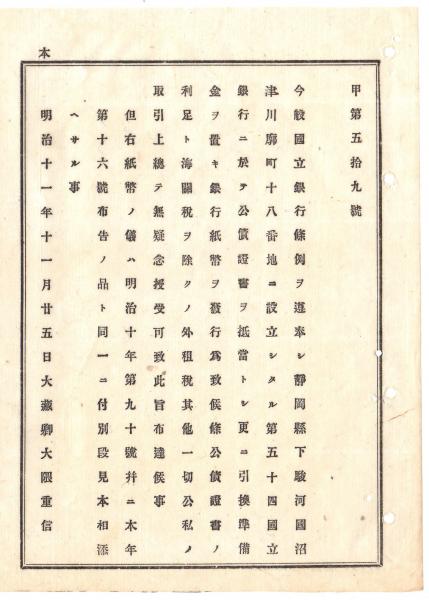 本
甲第五拾九號
今般國立銀行條例ヲ遵奉シ靜岡縣下駿河國沼
津川廓町十八番地ニ設立シタル第五十四國立
銀行ニ於テ公債證書ヲ抵當トシ更ニ引換準備
金ヲ置キ銀行紙幣ヲ發行爲致候條公債證書ノ
利足ト海關稅ヲ除クノ外租稅其他一切公私ノ
取引上總テ無疑念授受可致此旨布達候事
但右紙幣ノ儀ハ明治十年第九十號幷ニ本年
第十六號布告ノ品ト同一ニ付別段見本相添
ヘサル事
明治十一年十一月廿五日大藏卿大隈重信